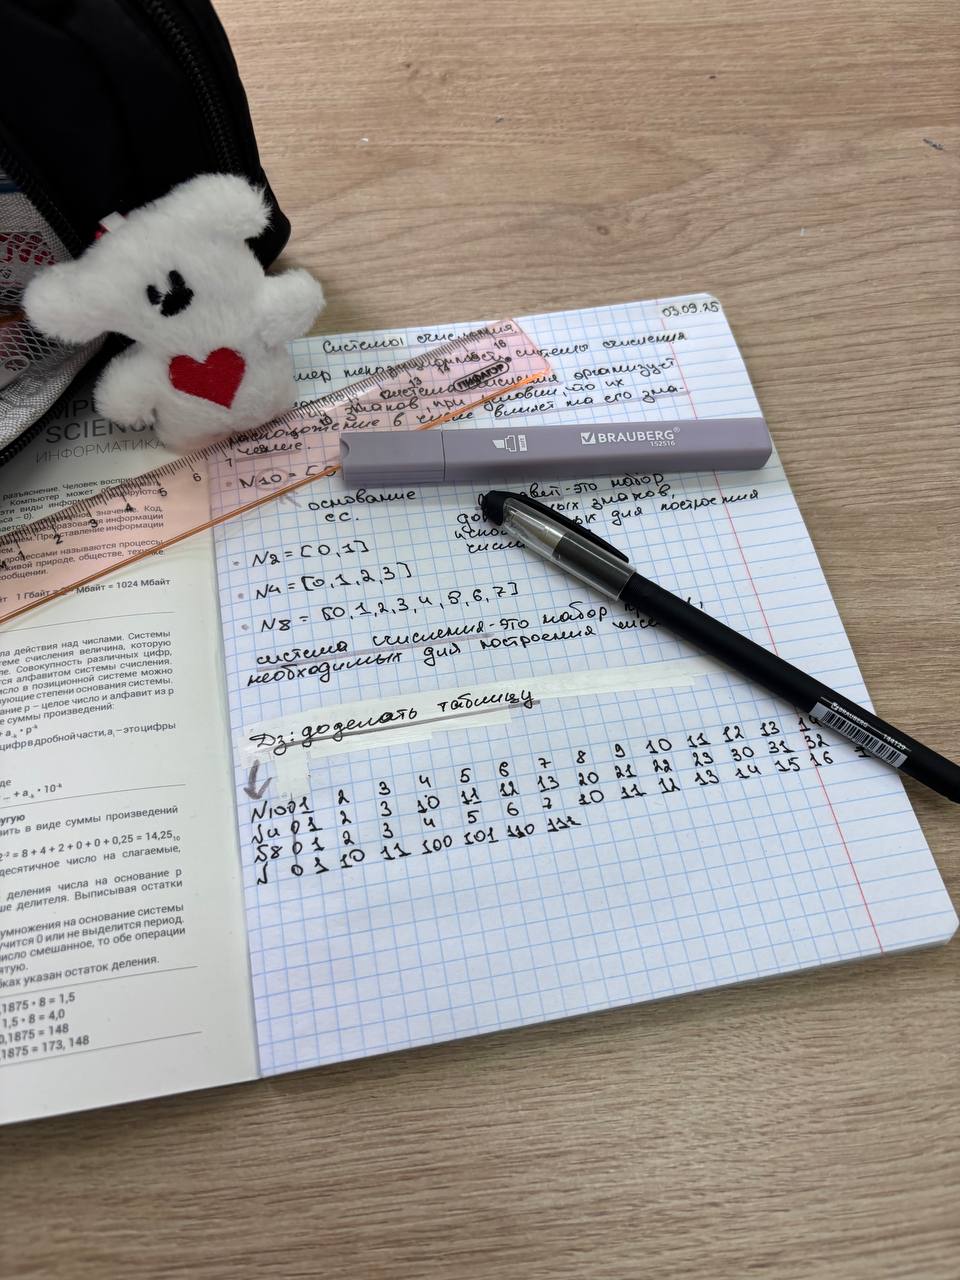 03.09.25
Системы счисления
мер непозиционность системы счисления
система счисления организует
знаков, при условии, что их
расположение в числе влияет на его зна-
чение.
N10 = [0
основание
с.с.
это набор
знаков,
для построения
N2 = [0,1]
N4 = [0,1,2,3]
N8 = [0,1,2,3,4,5,6,7]
система счисления - это набор
необходимых для построения
Дз: доделать таблицу
N10 0 1 2 3 4 5 6 7 8 9 10 11 12 13
N4 0 1 2 3 10 11 12 13 20 21 22 23 30 31 32
N8 0 1 2 3 4 5 6 7 10 11 12 13 14 15 16
N 0 1 10 11 100 101 110 111
BRAUBERG®
152516
BRAUBERG
144129
ПИФАГОР®
1 2 3 4 5 6 7
13
16
SCIENC
ИНФОРМАТИКА
разъяснение. Человек воспри
Компьютер может
эти виды информ
са – 0).
значение. Код,
разования информации
ем. Представление информации
процессами называются процессы,
живой природе, обществе, технике
сообщении.
т 1 Гбайт = 2 Мбайт = 1024 Мбайт
ла действия над числами. Системы
теме счисления величина, которую
ле. Совокупность различных цифр,
тся алфавитом системы счисления.
исло в позиционной системе можно
вующие степени основания системы.
ание p – целое число и алфавит из p
е суммы произведений:
цифр в дробной части, aᵢ – это цифры
де
ругую
вить в виде суммы произведений
2⁻² = 8 + 4 + 2 + 0 + 0 + 0,25 = 14,25₁₀
десятичное число на слагаемые,
деления числа на основание p
ше делителя. Выписывая остатки
умножения на основание системы
учится 0 или не выделится период.
исло смешанное, то обе операции
ятую.
бках указан остаток деления.
,1875 • 8 = 1,5
1,5 • 8 = 4,0
0,1875 = 148
,1875 = 173, 148